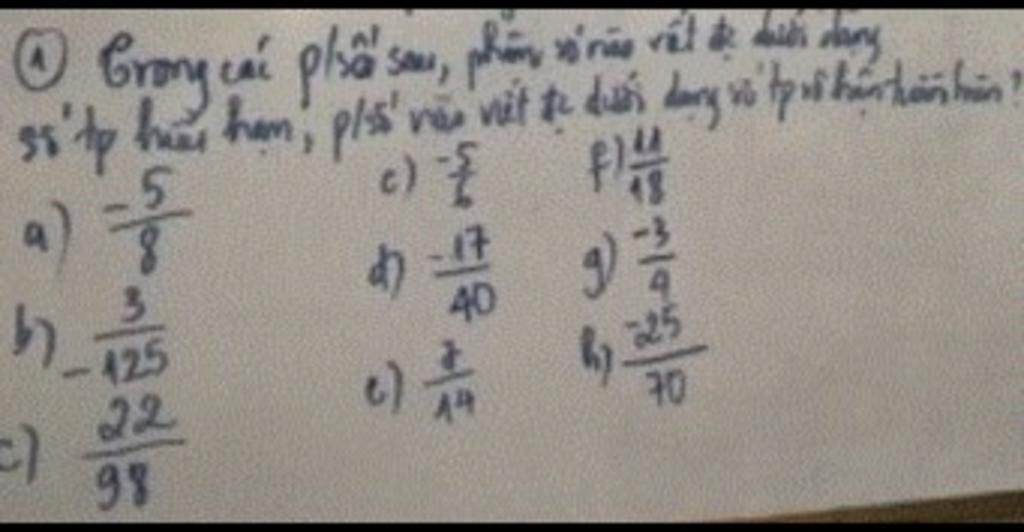 ① Trong các p/số sau, phân số nào viết đc dưới dạng
số tp hữu hạn, p/số nào viết đc dưới dạng số tp vô hạn tuần hoàn?
a) -5/8
b) 3/-125
c) 22/98
c) -5/6
d) -17/40
e) 7/14
f) 11/18
g) -3/9
h) -25/70